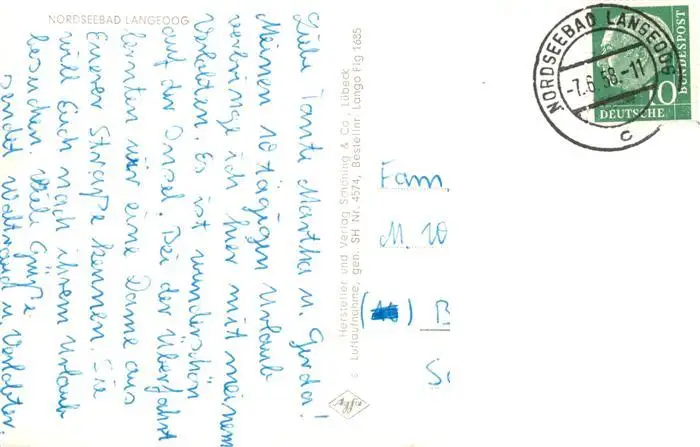 NORDSEEBAD LANGEOOG
Liebe Tante Martha u. Gerda!
Meinen 10 tägigen Urlaub
verbringe ich hier mit meinem
Verlobten. Es ist wunderschön
auf der Insel. Bei der Überfahrt
lernten wir eine Dame aus
Eurer Straße kennen. Sie
will Euch nach ihrem Urlaub
besuchen. Viele Grüße
sendet Waltraud u. Verlobter.
Hersteller und Verlag Schöning & Co., Lübeck
© Luftaufnahme, gen. SH Nr. 4574, Bestellnr. Lango Flg 1685
Agfa
NORDSEEBAD LANGEOOG
-7.6.58-11
c
10
DEUTSCHE
BUNDESPOST
Fam.
M. 10
(16) B
Sc